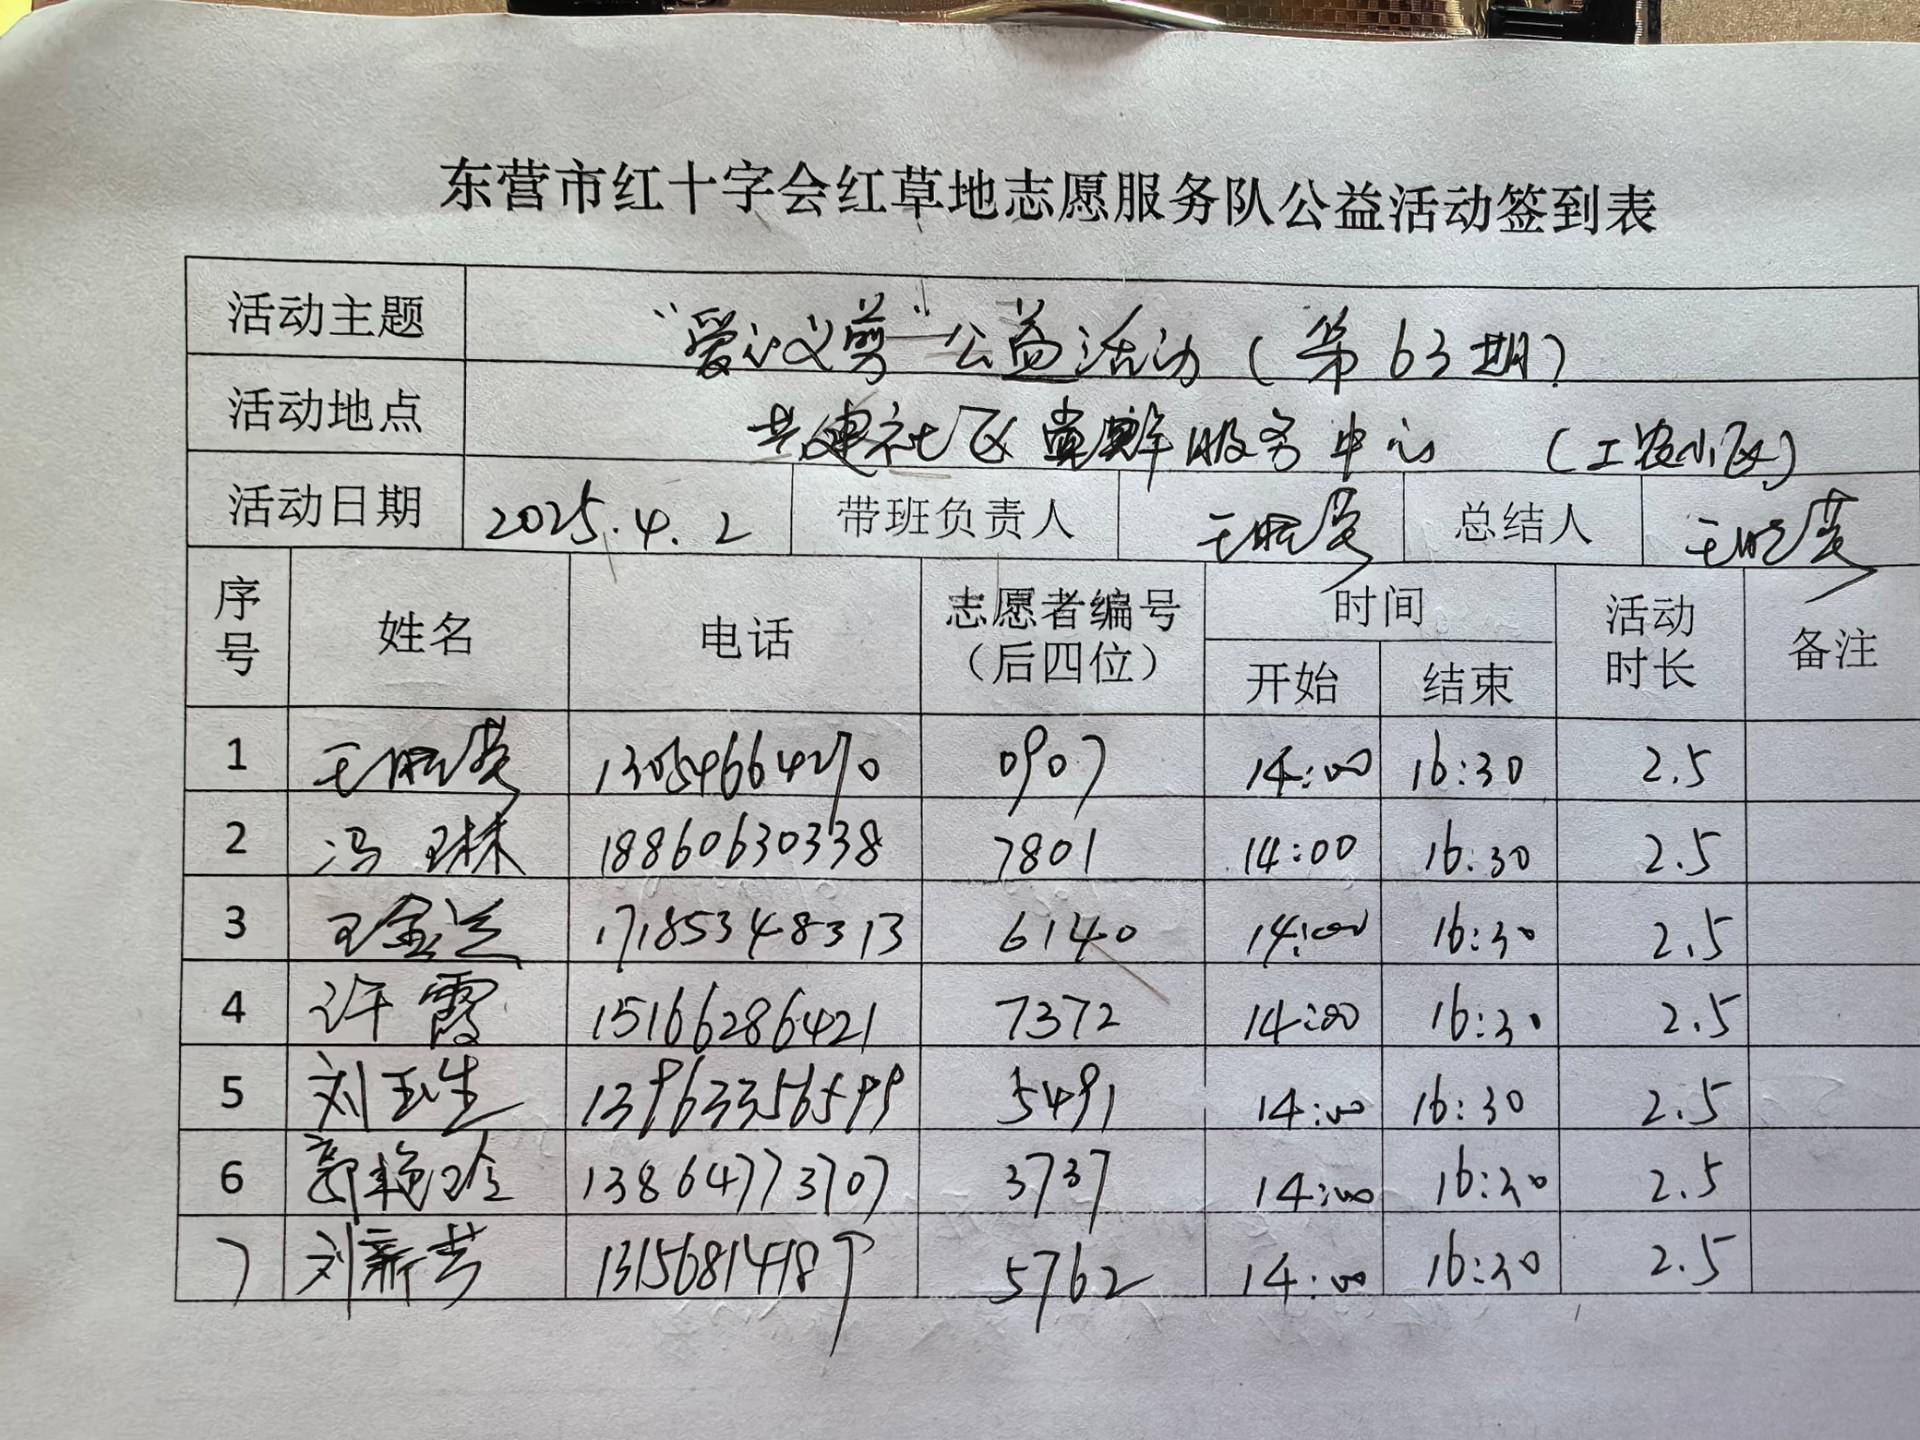 东营市红十字会红草地志愿服务队公益活动签到表
活动主题 “爱心义剪”公益活动（第63期）
活动地点 共建社区党群服务中心 （工农小区）
活动日期 2025.4.2 带班负责人 王晓英 总结人 王晓英
序号 姓名 电话 志愿者编号（后四位） 时间 开始 结束 活动时长 备注
1 王晓英 13054664270 0907 14:00 16:30 2.5
2 冯琳 18860630338 7801 14:00 16:30 2.5
3 王金兰 17185348313 6140 14:00 16:30 2.5
4 许霞 15166286421 7372 14:00 16:30 2.5
5 刘玉生 13963356599 5491 14:00 16:30 2.5
6 郭艳玲 13864773707 3737 14:00 16:30 2.5
7 刘新芳 5762 14:00 16:30 2.5